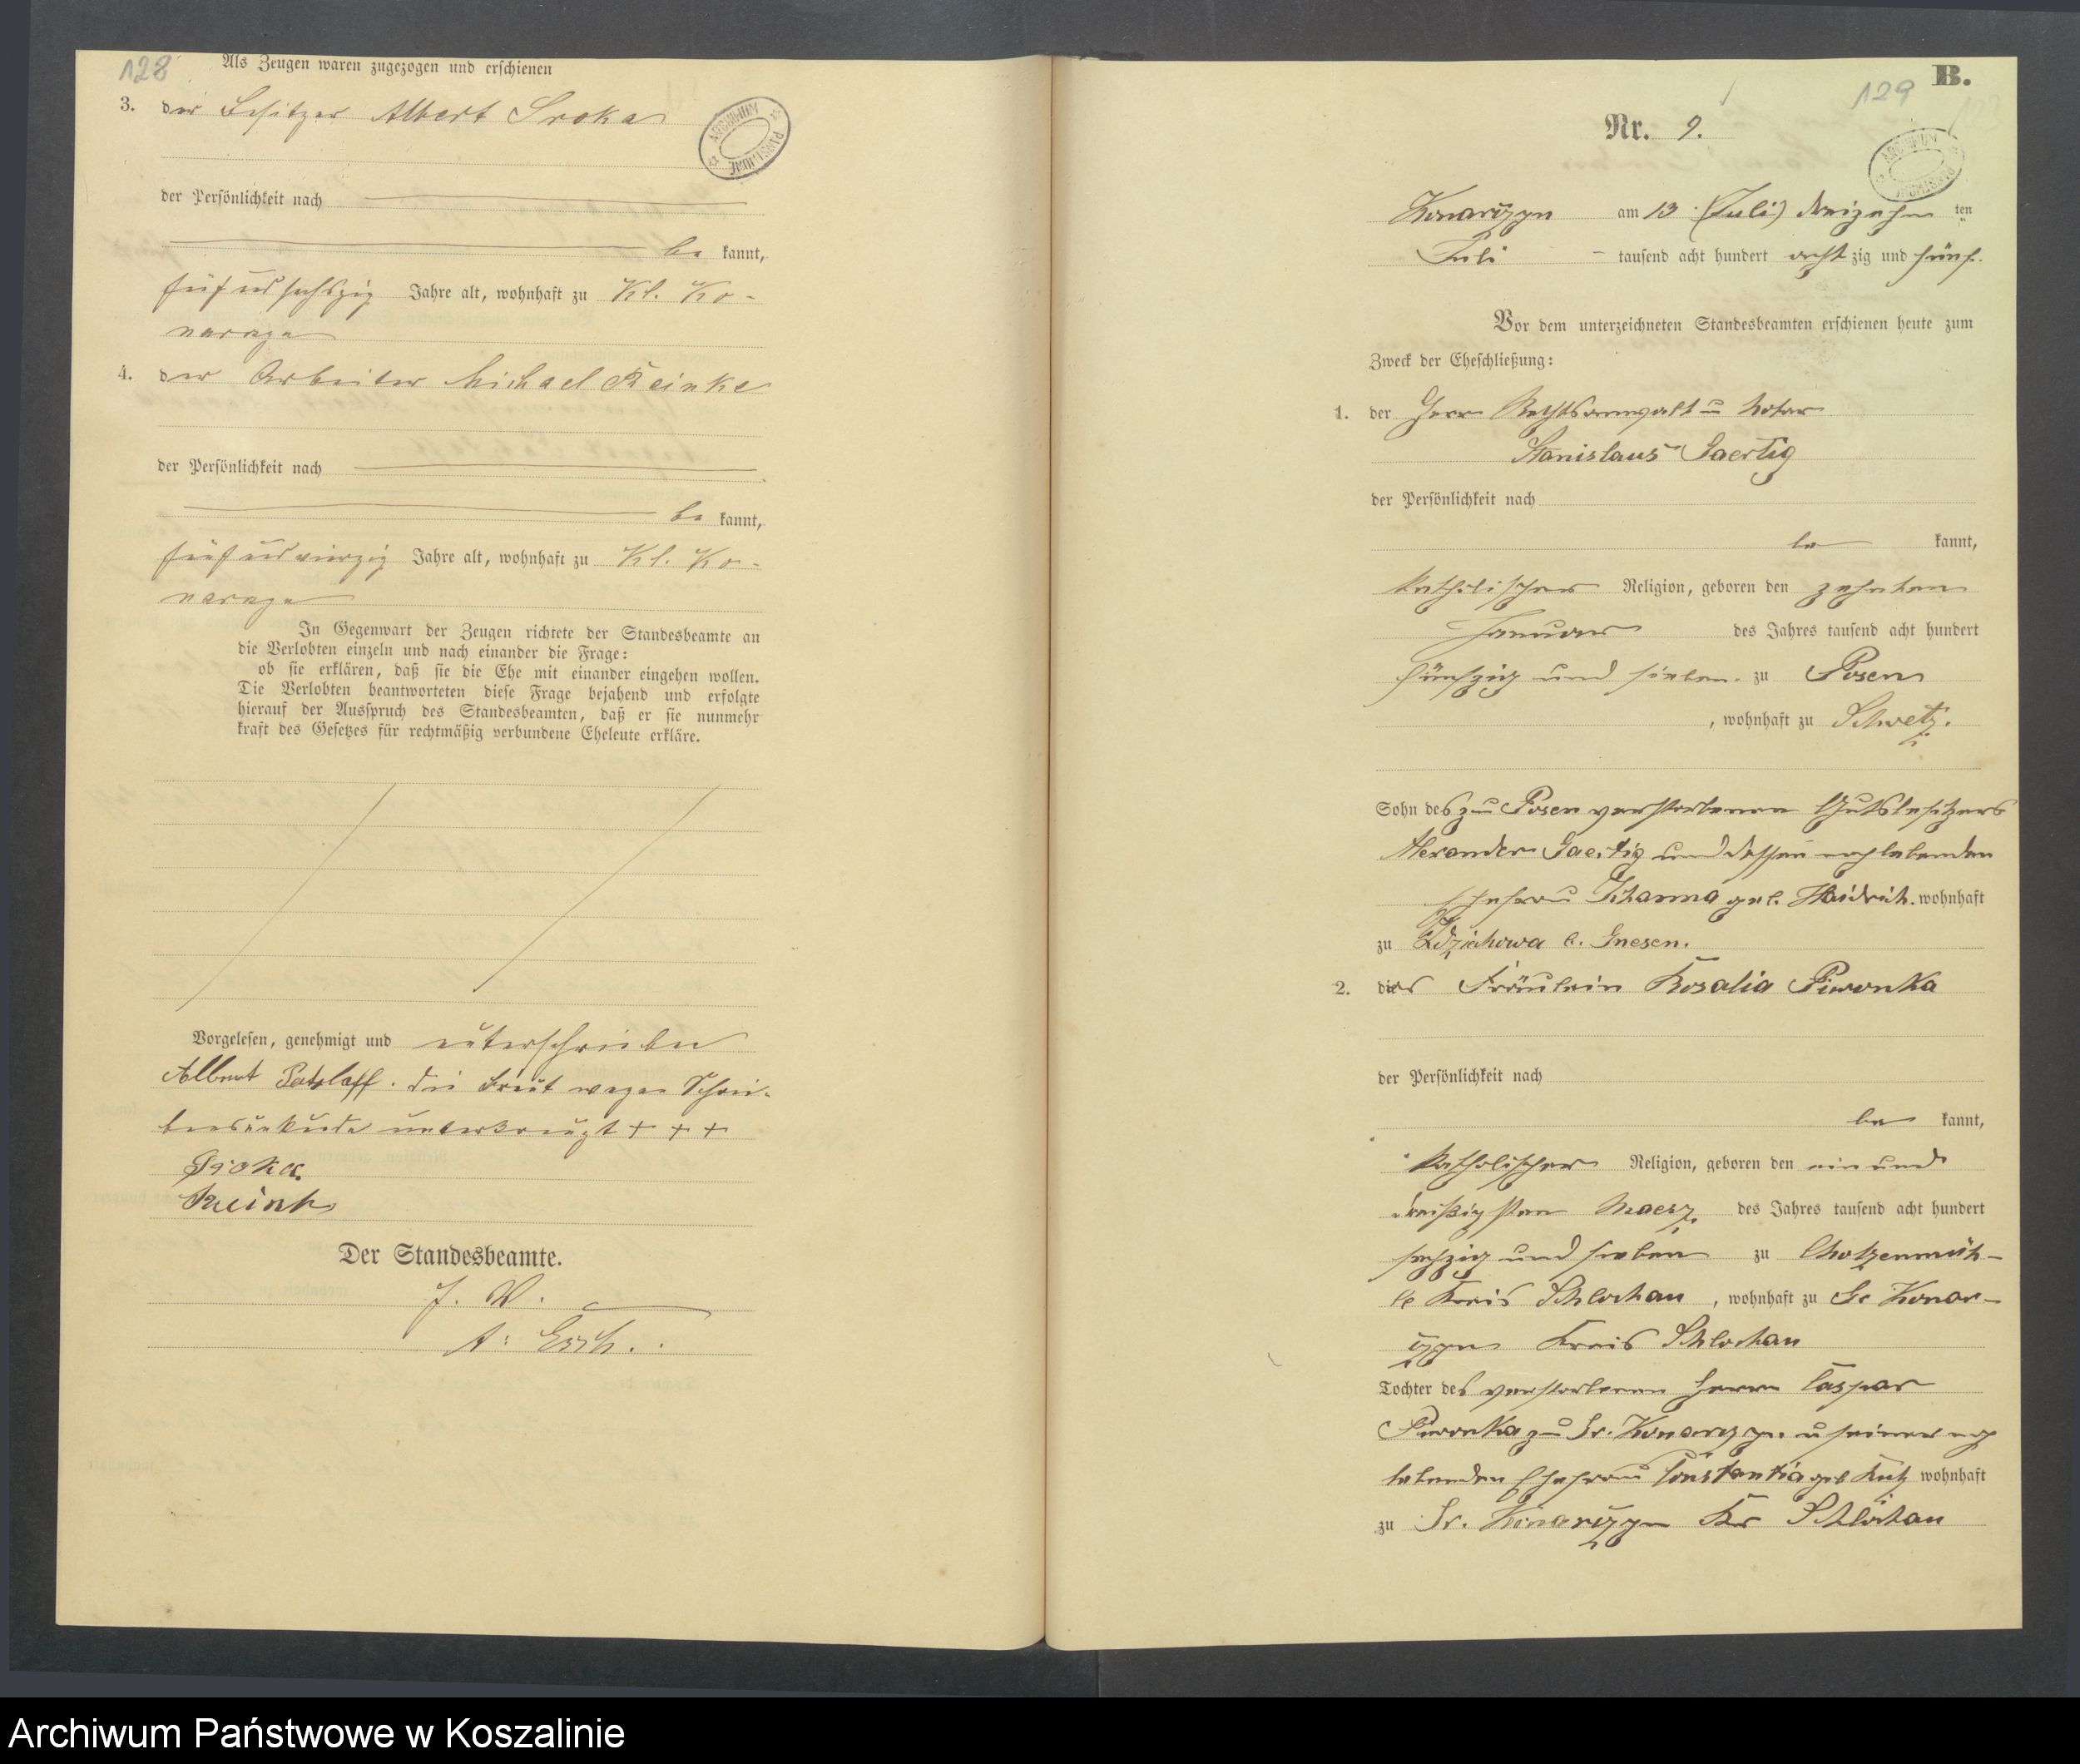 128
Als Zeugen waren zugezogen und erschienen
3. der Besitzer Albert Sroka
ARCHIWUM PAŃSTWOWE
der Persönlichkeit nach
be kannt,
fünfundsechszig Jahre alt, wohnhaft zu Kl. Ko-
narczyn
4. der Arbeiter Michael Reinke
der Persönlichkeit nach
be kannt,
fünfundvierzig Jahre alt, wohnhaft zu Kl. Ko-
narczyn
In Gegenwart der Zeugen richtete der Standesbeamte an
die Verlobten einzeln und nach einander die Frage:
ob sie erklären, daß sie die Ehe mit einander eingehen wollen.
Die Verlobten beantworteten diese Frage bejahend und erfolgte
hierauf der Ausspruch des Standesbeamten, daß er sie nunmehr
kraft des Gesetzes für rechtmäßig verbundene Eheleute erkläre.
Vorgelesen, genehmigt und unterschrieben
Albert Patzlaff. Die Braut wegen Schrei-
bensunkunde unterkreuzt + + +
Sroka.
Reink
Der Standesbeamte.
J. V.
B.
129
Nr. 9.
ARCHIWUM PAŃSTWOWE
Konarczyn am 13. (Juli) dreizehn ten
Juli – tausend acht hundert acht zig und fünf.
Vor dem unterzeichneten Standesbeamten erschienen heute zum
Zweck der Eheschließung:
1. der Herr Rechtsanwalt u Notar
Stanislaus Gaertig
der Persönlichkeit nach
be kannt,
katholischer Religion, geboren den zehnten
Januar des Jahres tausend acht hundert
fünfzig und sieben zu Posen
, wohnhaft zu Schwetz.
Sohn des zu Posen verstorbenen Gutsbesitzers
Alexander Gaertig und dessen noch lebenden
Ehefrau Johanna geb. Haidrich. wohnhaft
zu Zdziechowa b. Gnesen.
2. das Fräulein Rosalia Piwonka
der Persönlichkeit nach
be kannt,
katholischer Religion, geboren den ein und
dreißigsten Maerz des Jahres tausend acht hundert
sechzig und sieben zu Chotzenmüh-
le Kreis Schlochau , wohnhaft zu Gr Konar-
czyn Kreis Schlochau
Tochter des verstorbenen Herrn Caspar
Piwonka zu Gr. Konarczyn u seiner noch
lebenden Ehefrau Constantia geb wohnhaft
zu Gr. Konarczyn Kr Schlochau
Archiwum Państwowe w Koszalinie